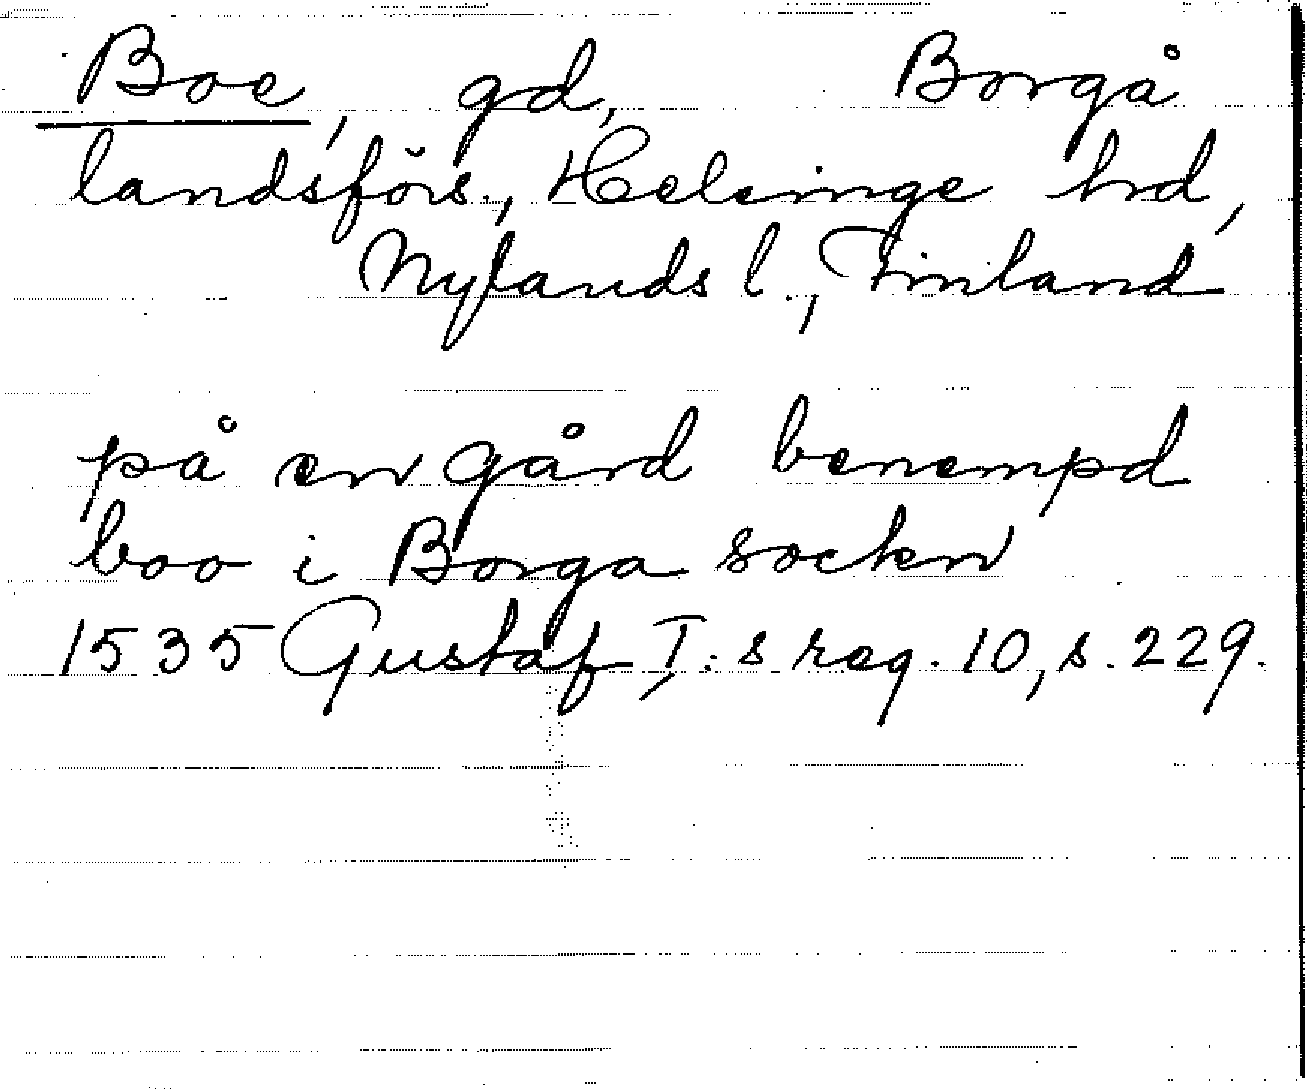 Boe, gd, Borgå
landsförs., Helsinge hd,
Nylands l., Finland
på en gård benempd
boo i Borga sockn
1535 Gustaf I:s reg. 10, s. 229.